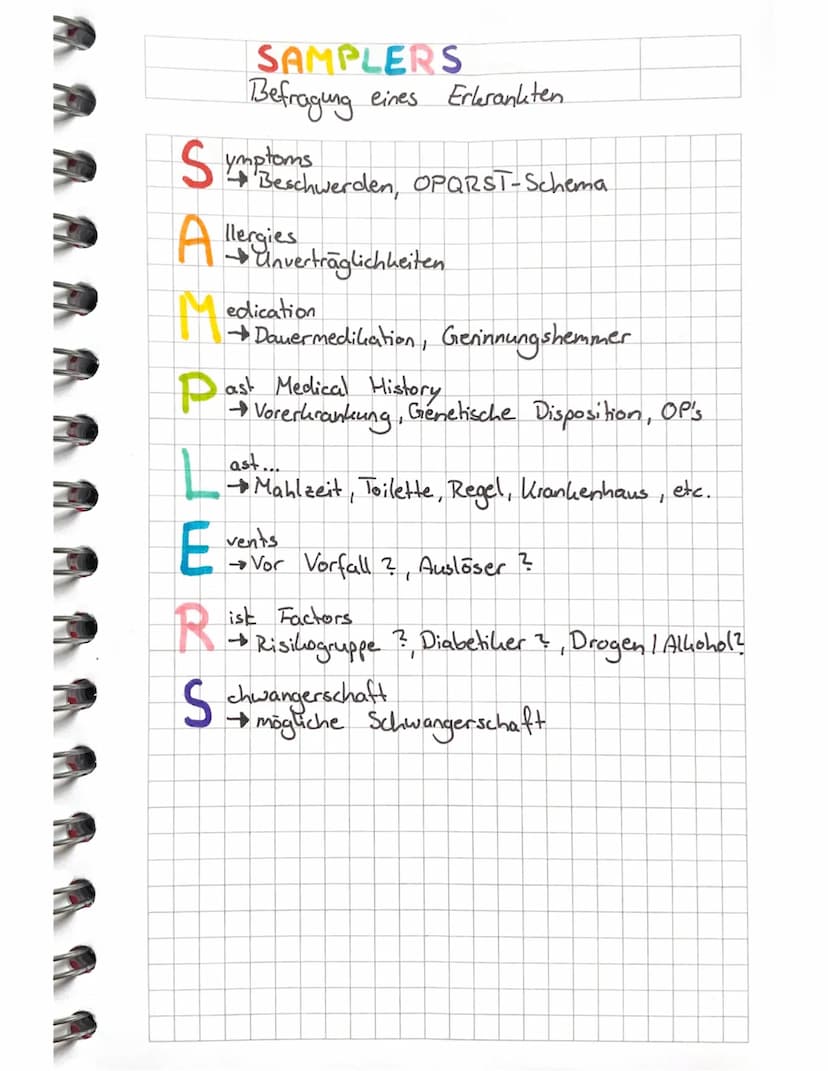 SAMPLERS
Befragung eines Erkrankten
Symptoms
→ Beschwerden, OPQRST-Schema
Allergies
→ Unverträglichkeiten
Medication
→ Dauermedikation, Gerinnungshemmer
Past Medical History
→ Vorerkrankung, Genetische Disposition, OP's
Last...
→ Mahlzeit, Toilette, Regel, Krankenhaus, etc.
Events
→ Vor Vorfall?, Auslöser?
Risk Factors
→ Risikogruppe?, Diabetiker?, Drogen / Alkohol?
Schwangerschaft
→ mögliche Schwangerschaft